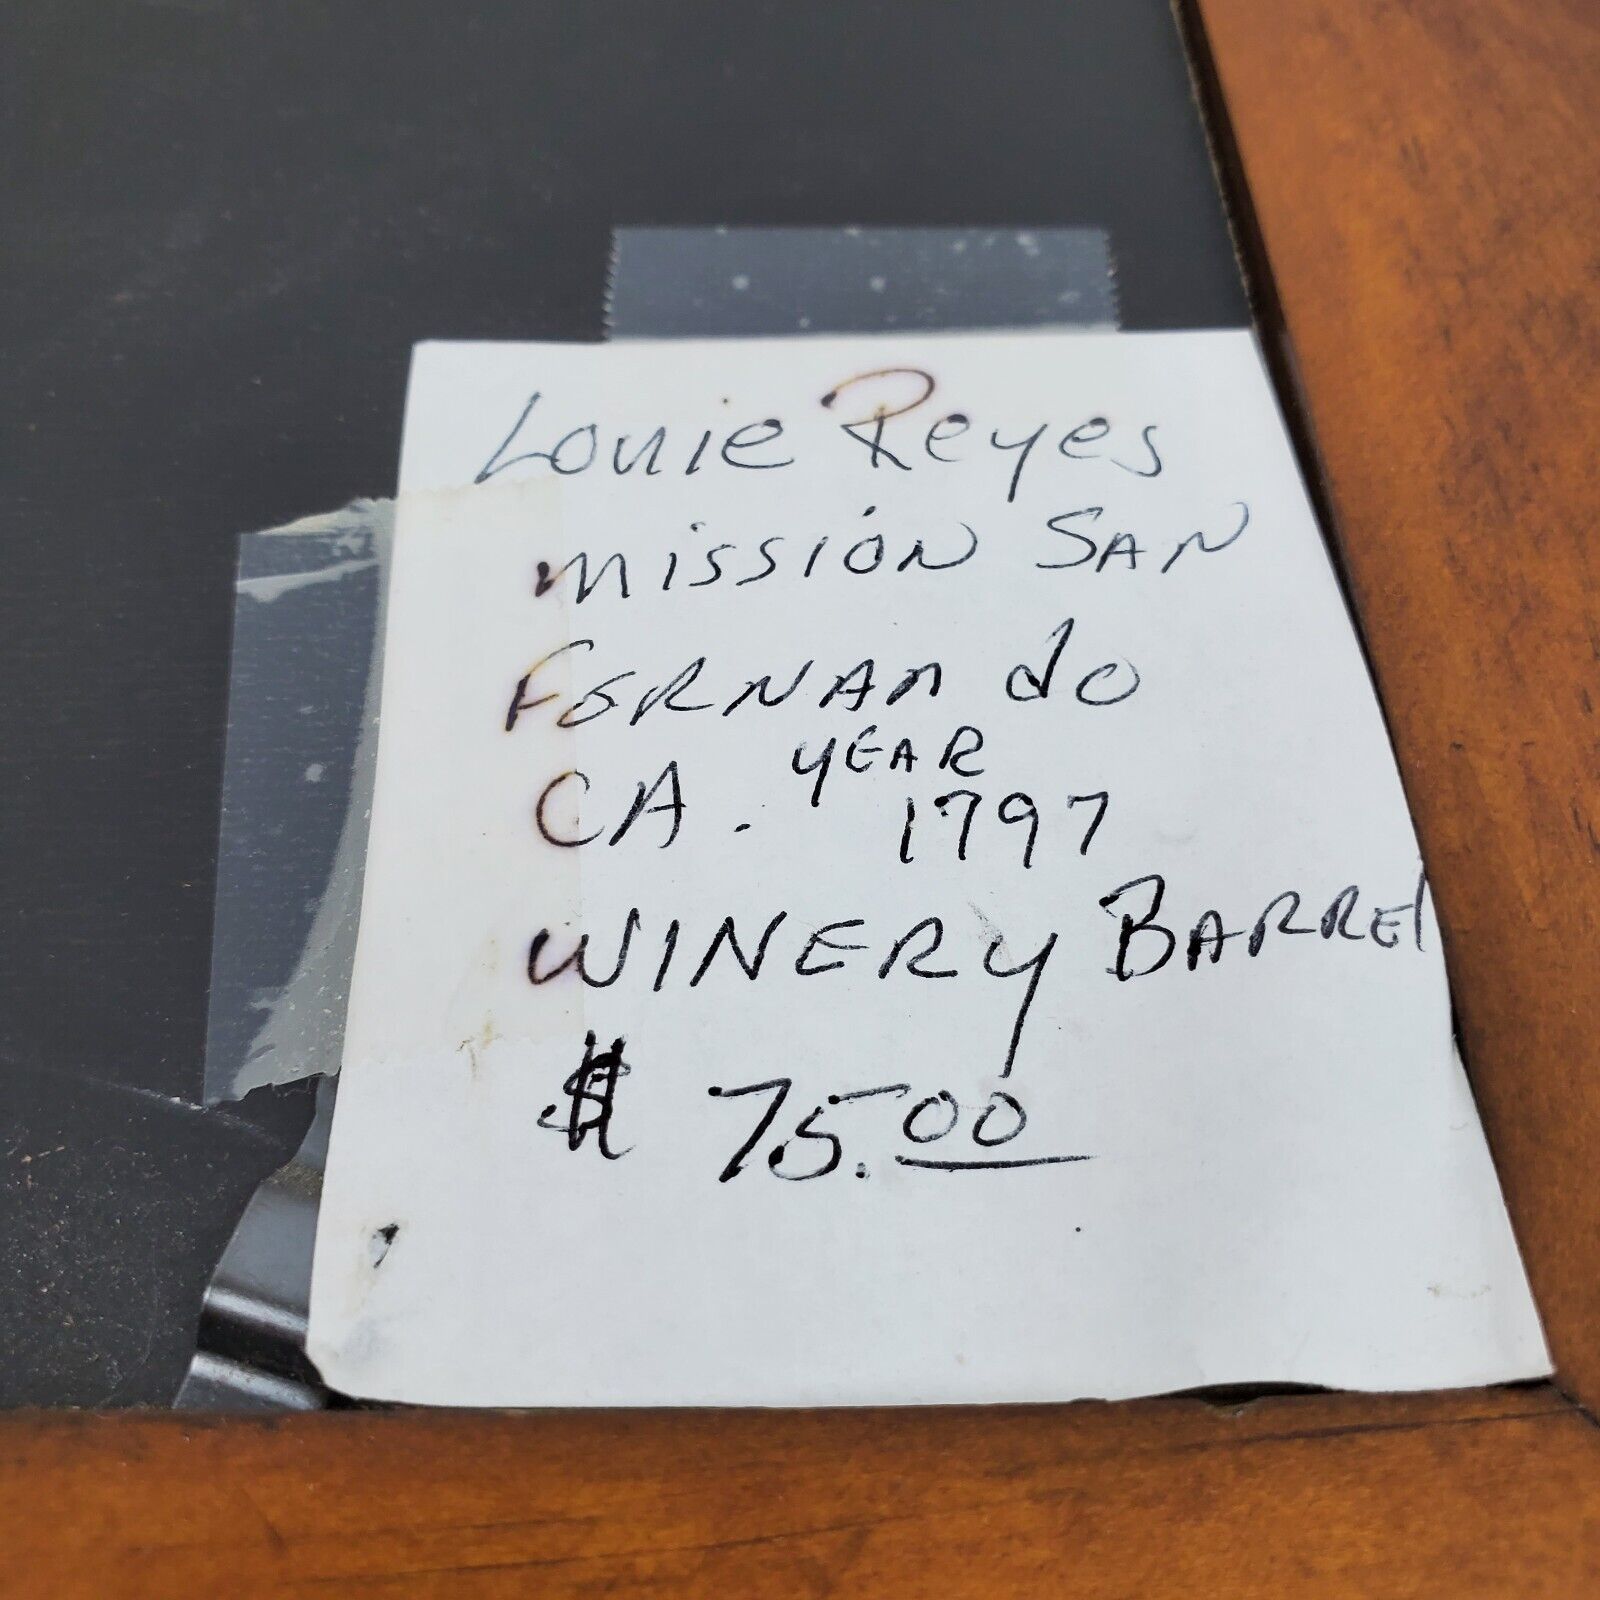 Louie Reyes
Mission San
Fernando
CA. Year 1797
Winery Barrel
$ 75.00